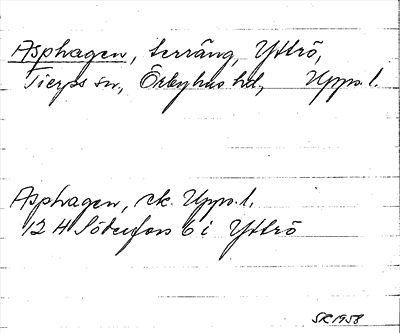 Asphagen, terräng, Yttrö,
Tierps sn, Örbyhus hd, Upps. l.
Asphagen, ek. Upps. l.
12 H Söderfors 6 i Yttrö
SR 1958